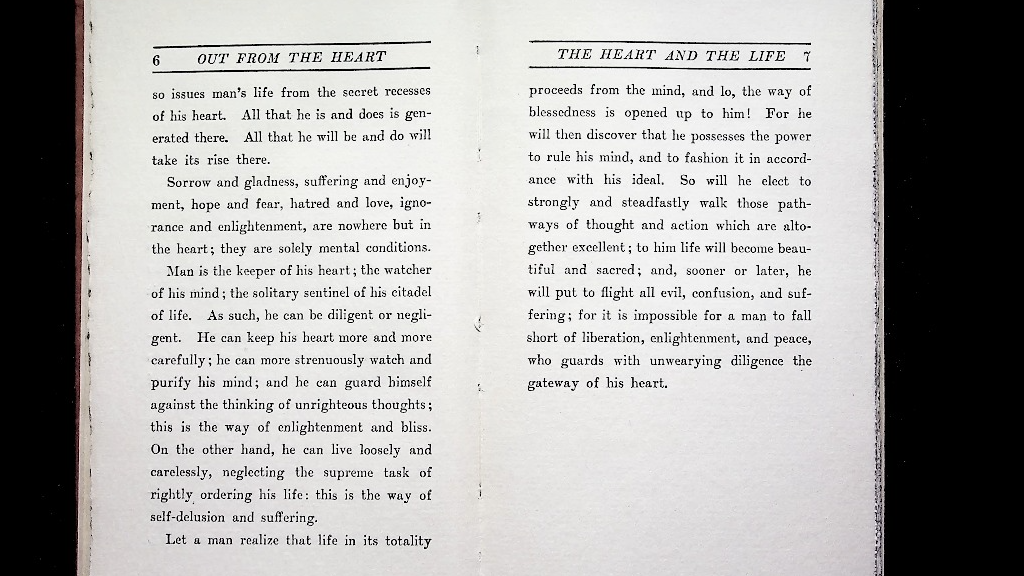 6 OUT FROM THE HEART
so issues man's life from the secret recesses
of his heart. All that he is and does is gen-
erated there. All that he will be and do will
take its rise there.
Sorrow and gladness, suffering and enjoy-
ment, hope and fear, hatred and love, igno-
rance and enlightenment, are nowhere but in
the heart; they are solely mental conditions.
Man is the keeper of his heart; the watcher
of his mind; the solitary sentinel of his citadel
of life. As such, he can be diligent or negli-
gent. He can keep his heart more and more
carefully; he can more strenuously watch and
purify his mind; and he can guard himself
against the thinking of unrighteous thoughts;
this is the way of enlightenment and bliss.
On the other hand, he can live loosely and
carelessly, neglecting the supreme task of
rightly ordering his life: this is the way of
self-delusion and suffering.
Let a man realize that life in its totality
THE HEART AND THE LIFE 7
proceeds from the mind, and lo, the way of
blessedness is opened up to him! For he
will then discover that he possesses the power
to rule his mind, and to fashion it in accord-
ance with his ideal. So will he elect to
strongly and steadfastly walk those path-
ways of thought and action which are alto-
gether excellent; to him life will become beau-
tiful and sacred; and, sooner or later, he
will put to flight all evil, confusion, and suf-
fering; for it is impossible for a man to fall
short of liberation, enlightenment, and peace,
who guards with unwearying diligence the
gateway of his heart.